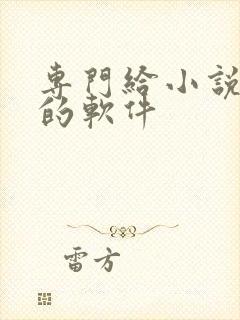 專門給小說
的軟件
雷方